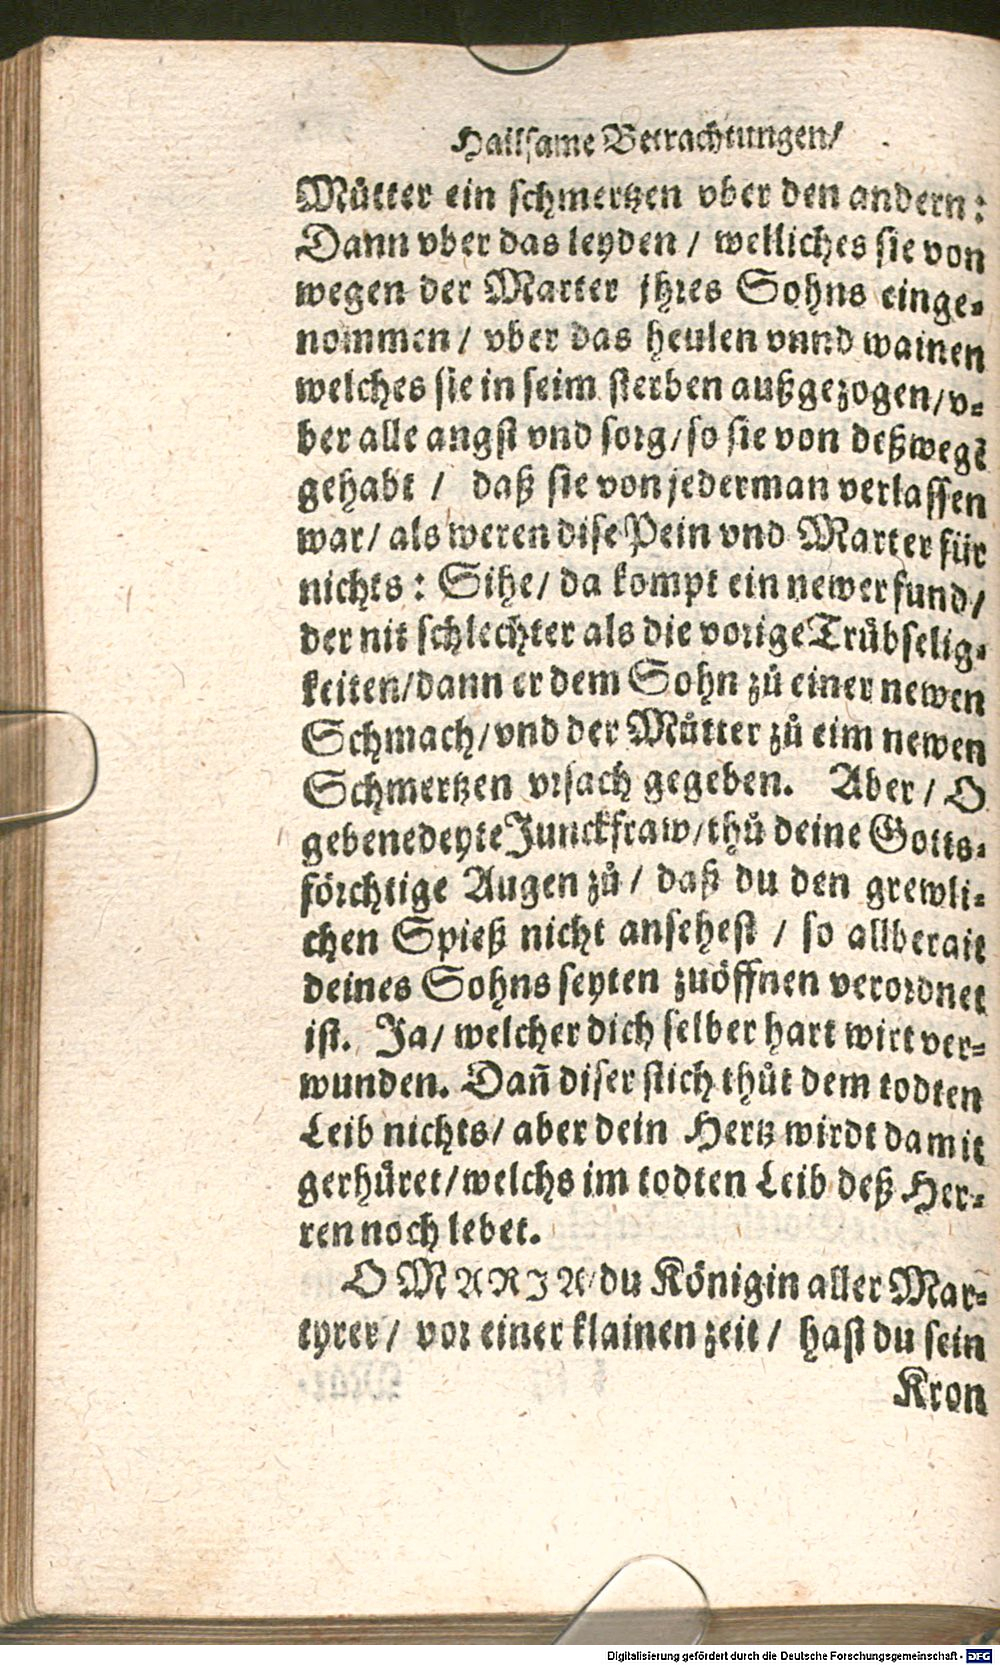 Hailsame Betrachtungen/
Můtter ein schmertzen vber den andern:
Dann vber das leyden / welliches sie von
wegen der Marter jhres Sohns einge-
nommen / vber das heulen vnnd wainen
welches sie in seim sterben außgezogen/v-
ber alle angst vnd sorg/so sie von deßwegē
gehabt / daß sie von jederman verlassen
war/ als weren dise Pein vnd Marter für
nichts: Sihe/ da kompt ein newer fund/
der nit schlechter als die vorige Trůbselig-
keiten/dann er dem Sohn zů einer newen
Schmach/vnd der Můtter zů eim newen
Schmertzen vrsach gegeben. Aber/ O
gebenedeyte Junckfraw/thů deine Gotts-
förchtige Augen zů/ daß du den grewli-
chen Spieß nicht ansehest / so allberait
deines Sohns seyten zuöffnen verordnet
ist. Ja/ welcher dich selber hart wirt ver-
wunden. Dañ diser stich thůt dem todten
Leib nichts/ aber dein Hertz wirdt damit
gerhůret/welchs im todten Leib deß Her-
ren noch lebet.
O MARIA/du Königin aller Mar-
tyrer/ vor einer klainen zeit / hast du sein
Kron
Digitalisierung gefördert durch die Deutsche Forschungsgemeinschaft - DFG